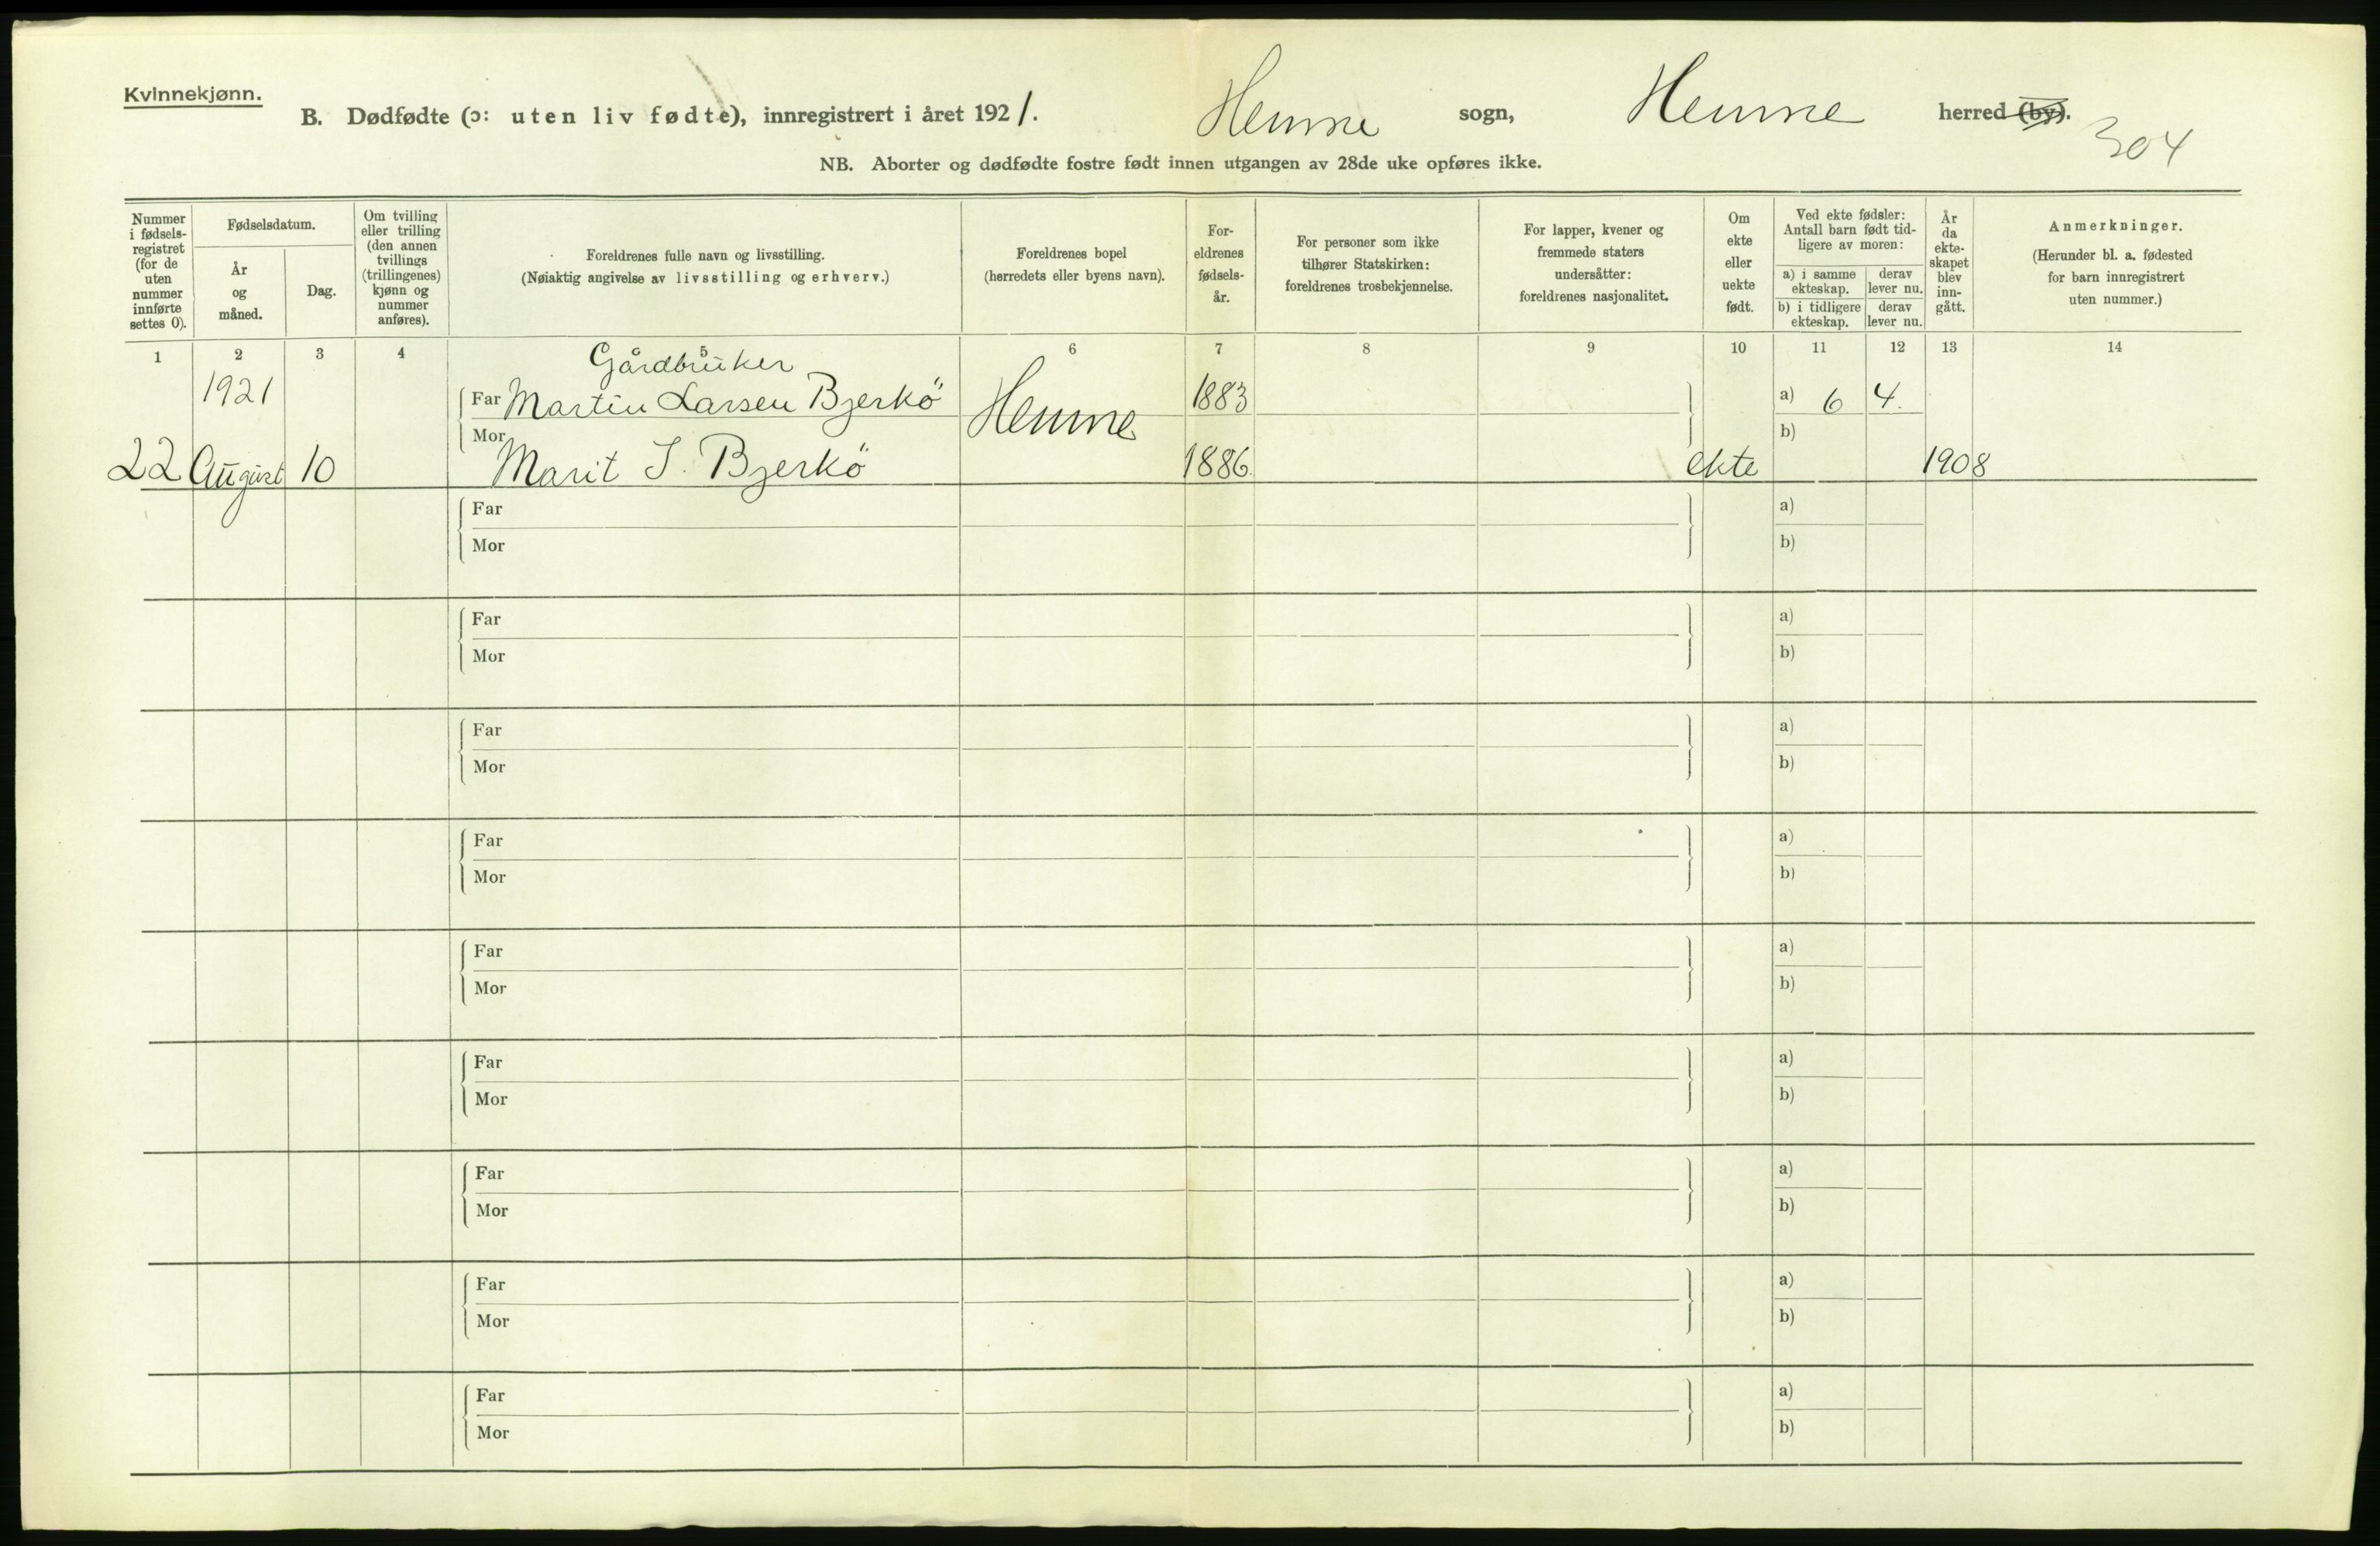 Kvinnekjønn.
B. Dødfødte (ɔ: uten liv fødte), innregistrert i året 1921. Hemne sogn, Hemne herred (by).
304
NB. Aborter og dødfødte fostre født innen utgangen av 28de uke opføres ikke.
Nummer
i fødsels-
registret
(for de
uten
nummer
innførte
settes 0).
Fødselsdatum.
År
og
måned.
Dag.
Om tvilling
eller trilling
(den annen
tvillings
(trillingenes)
kjønn og
nummer
anføres).
Foreldrenes fulle navn og livsstilling.
(Nøiaktig angivelse av livsstilling og erhverv.)
Foreldrenes bopel
(herredets eller byens navn).
For-
eldrenes
fødsels-
år.
For personer som ikke
tilhører Statskirken:
foreldrenes trosbekjennelse.
For lapper, kvener og
fremmede staters
undersåtter:
foreldrenes nasjonalitet.
Om
ekte
eller
uekte
født.
Ved ekte fødsler:
Antall barn født tid-
ligere av moren:
a) i samme
ekteskap.
derav
lever nu.
b) i tidligere
ekteskap.
derav
lever nu.
År
da
ekte-
skapet
blev
inn-
gått.
Anmerkninger.
(Herunder bl. a. fødested
for barn innregistrert
uten nummer.)
1 2 3 4 5 6 7 8 9 10 11 12 13 14
Gårdbruker
1921 Far Martin Larsen Bjerkö Hemne 1883 a) 6 4.
Mor b)
22 August 10 Marit J. Bjerkö 1886. ekte 1908
Far a)
Mor b)
Far a)
Mor b)
Far a)
Mor b)
Far a)
Mor b)
Far a)
Mor b)
Far a)
Mor b)
Far a)
Mor b)
Far a)
Mor b)
Far a)
Mor b)